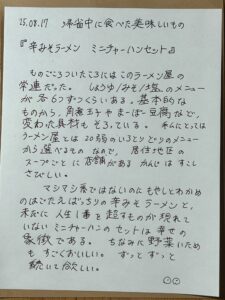 25.08.17 帰省中に食べた美味しいもの
『辛みそラーメン ミニチャーハンセット』
ものごころついたころにはこのラーメン屋の
常連だった。 しょうゆ/みそ/塩のメニュー
が各6つずつくらいある。基本的な
ものから、角煮玉子やまーぼー豆腐など、
変わった具材もそろっている。 私にとっては
ラーメン屋とは 20弱のいろとりどりのメニュー
から選べるもの なので、居住地区の
スープごとに店舗がある かんじはすこし
さびしい。
マシマシ系ではないのにもやしとわかめ
のはごたえばっちりの辛みそラーメンと、
未だに 人生1番を超すものが現れて
いないミニチャーハンのセットは幸せの
象徴である。 ちなみに野菜いため
もすごくおいしい。 ずっとずっと
続いて欲しい。
〇〇